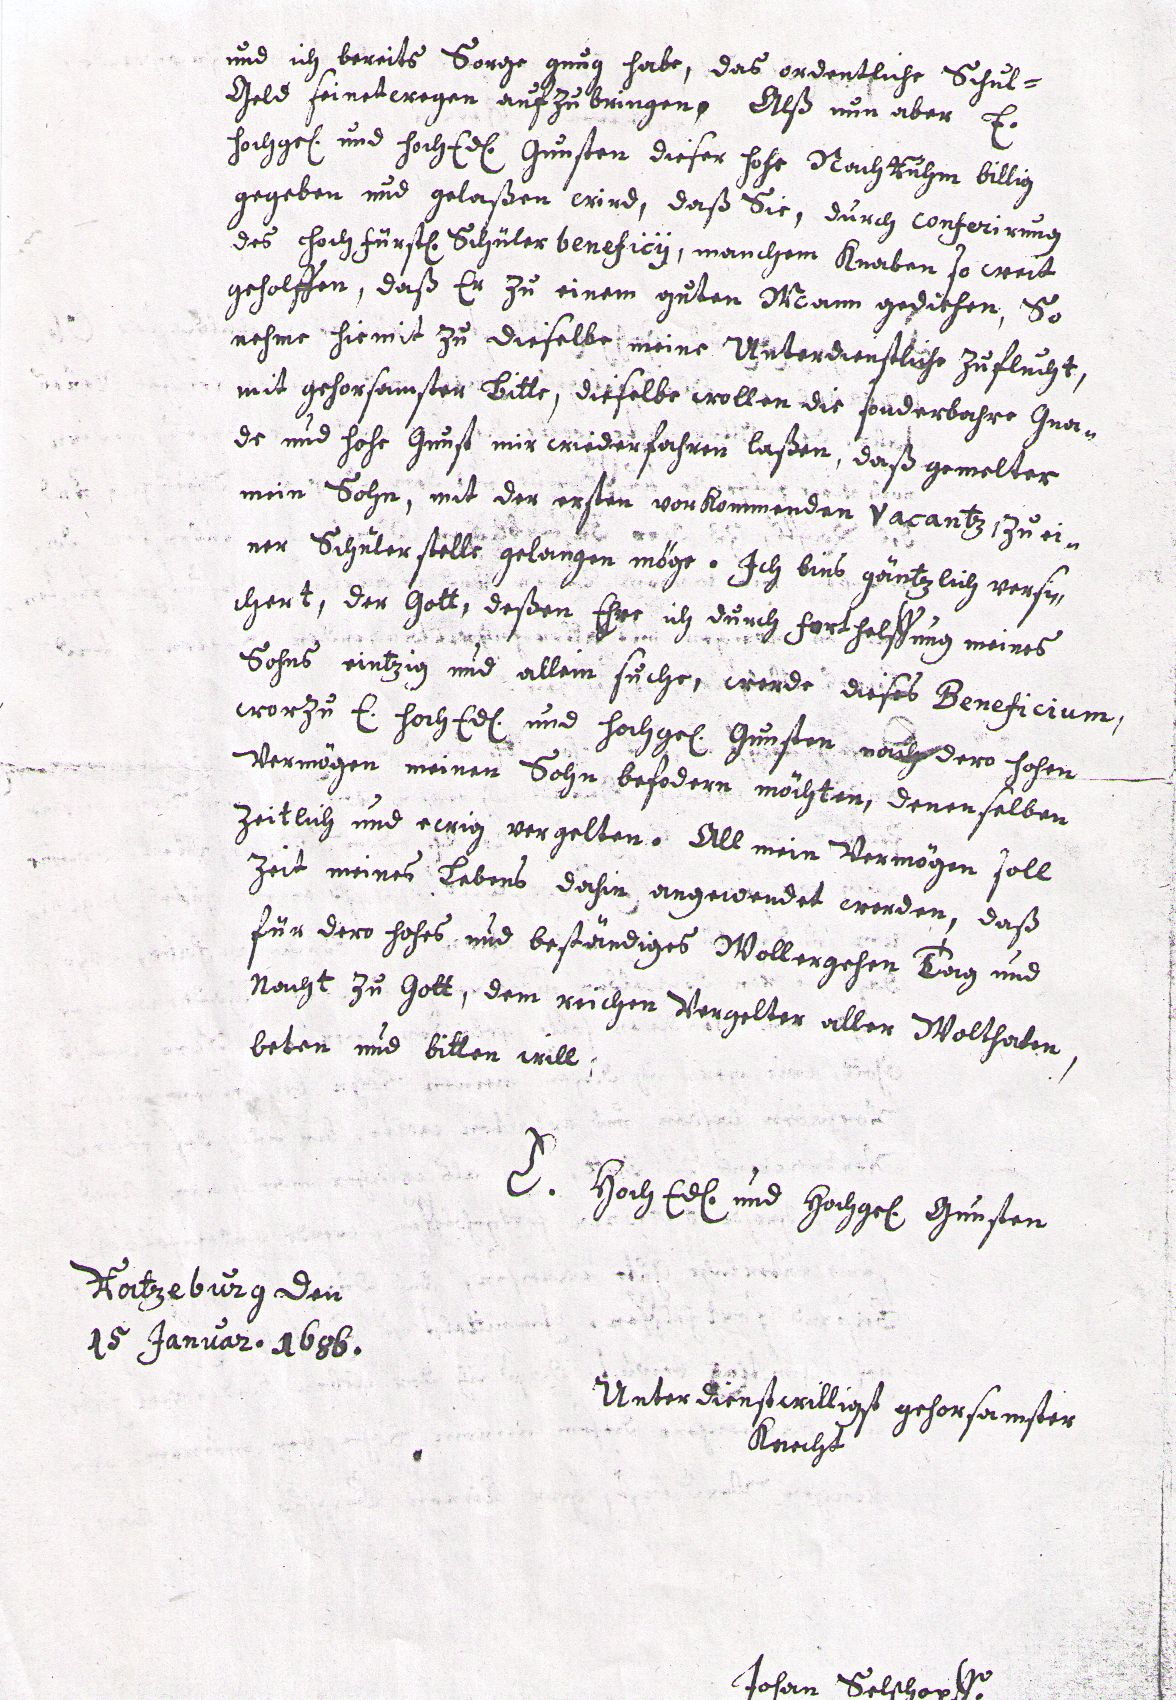 und ich bereits Sorge gnug habe, das ordentliche Schul=
Geld seinetwegen aufzubringen, Alß nun aber E.
hochgel. und hochEdl. Gunsten dieser hohe NachRuhm billig
gegeben und gelaßen wird, daß Sie, durch conferirung
des hochfürstl. Schüler beneficij, manchem Knaben so weit
geholffen, daß Er zu einem guten Mann gediehen, So
nehme hiemit zu dieselbe meine Unterdienstliche Zuflucht,
mit gehorsamster Bitte, dieselbe wollen die sonderbahre Gna=
de und hohe Gunst mir wiederfahren laßen, daß gemelter
mein Sohn, mit der ersten vorkommenden Vacantz, zu ei=
ner Schülerstelle gelangen möge. Ich bins gäntzlich versi=
chert, der Gott, deßen Ehre ich durch forthelffung meines
Sohns eintzig und allein suche, werde dieses Beneficium,
worzu E. hochEdl. und hochgel. Gunsten nach dero hohen
Vermögen meinen Sohn befodern möchten, denenselben
zeitlich und ewig vergelten. All mein Vermögen soll
Zeit meines Lebens dahin angewendet werden, daß
für dero hohes und beständiges Wollergehen Tag und
Nacht zu Gott, dem reichen Vergelter aller Wolthaten,
beten und bitten will,
E. HochEdl. und Hochgel. Gunsten
Ratzeburg den
15 Januar. 1686.
Unterdienstwilligst gehorsamster
Knecht
Johan Selschopff.